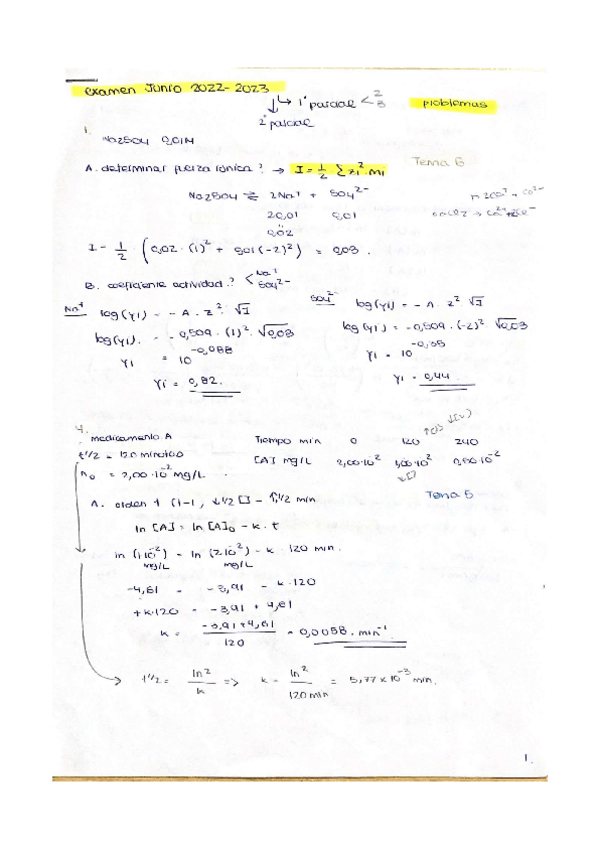 examen Junio 2022-2023
↳ 1º parcial < 2 3
problemas
2º parcial
1.
Na2SO4 0,01M
A. determinar fuerza iónica? → I = 1/2 Σ zi² · mi
Tema 6
Na2SO4 ⇌ 2Na⁺ + SO4²⁻
2·0,01 0,01
0,02
I = 1/2 (0,02 · (1)² + 0,01 (-2)²) = 0,03.
B. coeficiente actividad? < Na⁺ SO4²⁻
Na⁺ log(γi) = - A · z² · √I
log(γi) = - 0,509 · (1)² · √0,03
γi = 10^-0,088
γi = 0,82.
SO4²⁻ log(γi) = - A · z² √I
log(γi) = -0,509 · (-2)² √0,03
γi = 10^-0,35
γi = 0,44
4.
medicamento A
t1/2 = 120 minutos
n0 = 2,00·10⁻² mg/L
Tiempo min 0 120 240
[A] mg/L 2,00·10⁻² 1,00·10⁻² 0,50·10⁻²
A. orden 1 (1-1, ↓1/2 [] - ↑1/2 min
Tema 5
ln [A] = ln [A]0 - k · t
ln (1·10⁻²) = ln (2·10⁻²) - k · 120 min.
mg/L mg/L
-4,61 = -3,91 - k·120
+k·120 = -3,91 + 4,61
k = -3,91+4,61 / 120 = 0,0058 · min⁻¹
→ t1/2 = ln 2 / k => k = ln 2 / 120 min = 5,77 x 10⁻³ min.
1.